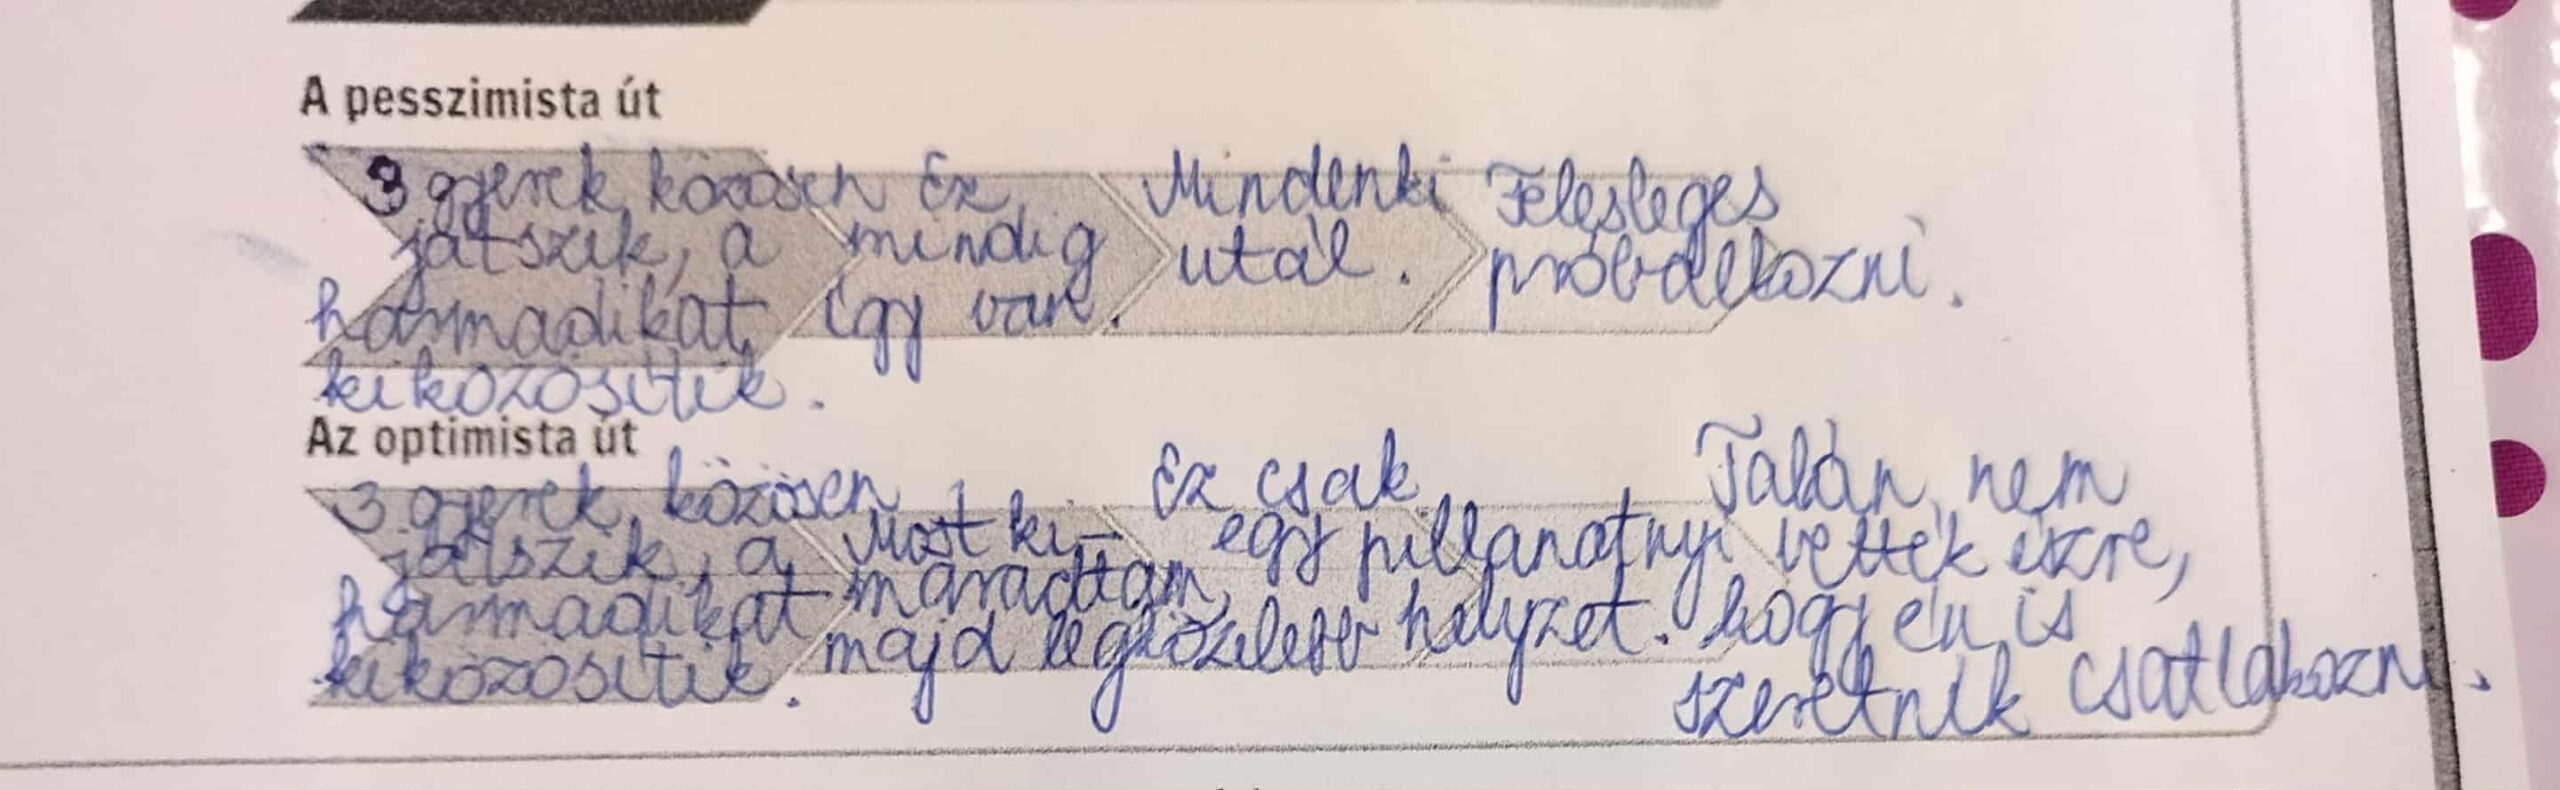 A pesszimista út
3 gyerek közösen
játszik, a
harmadikat
kiközösítik.
Ez
mindig
így van.
Mindenki
utál.
Felesleges
próbálkozni.
Az optimista út
3 gyerek közösen
játszik, a
harmadikat
kiközösítik.
Most ki-
maradtam,
majd legközelebb
Ez csak
egy pillanatnyi
helyzet.
Talán nem
vették észre,
hogy én is
szeretnék csatlakozni.